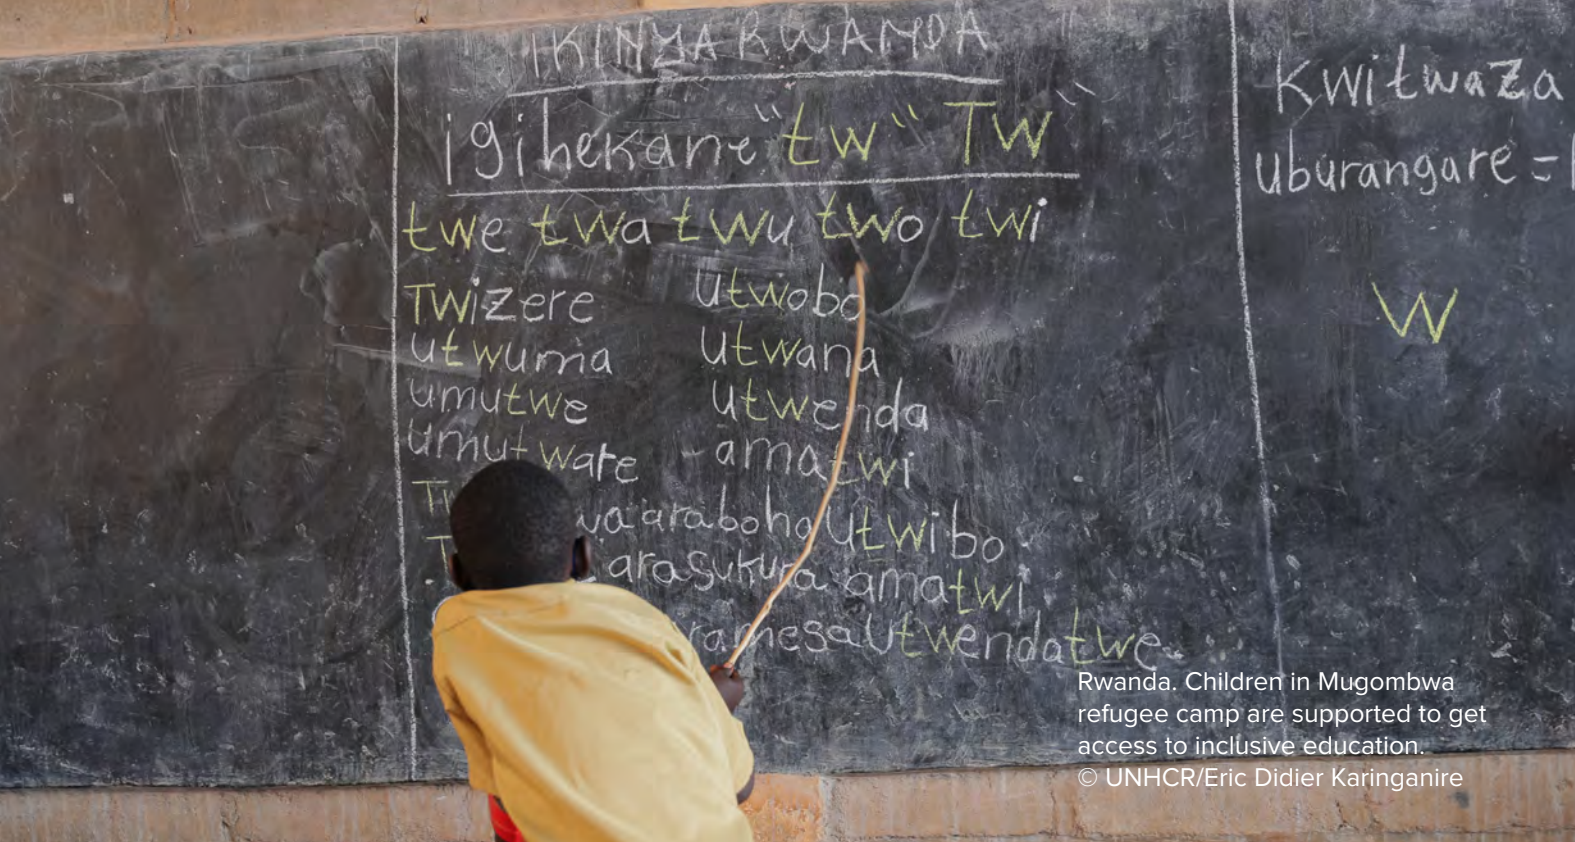 IKINYARWANDA
igihekane "tw" "TW"
twe twa twu two twi
Twizere utwobo
utwuma utwana
umutwe utwenda
umutware amatwi
araboha utwibo
arasukura amatwi
utwendatwe
Kwitwaza
uburangare =
W
Rwanda. Children in Mugombwa
refugee camp are supported to get
access to inclusive education.
© UNHCR/Eric Didier Karinganire